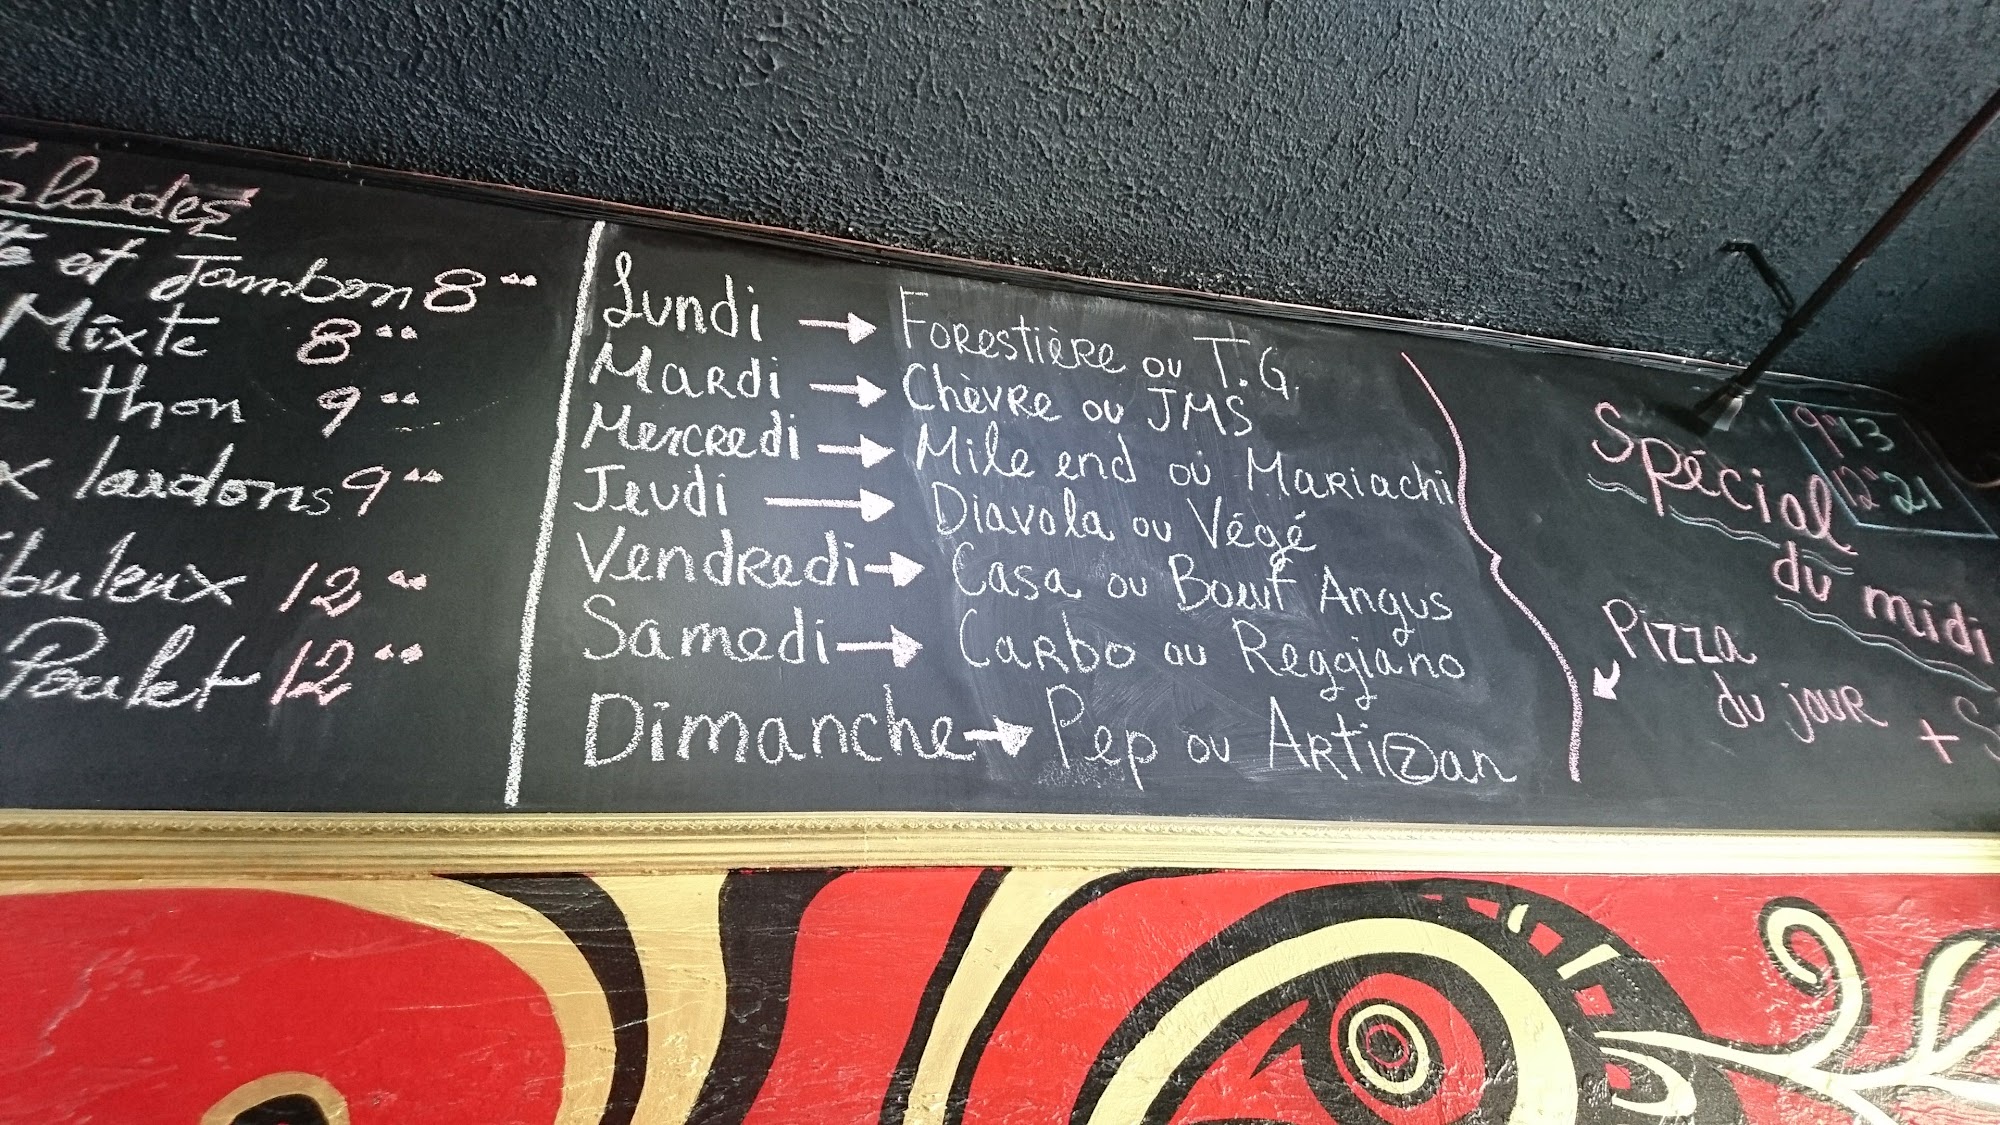 Salades
et Jambon 8""
Mixte 8""
thon 9""
lardons 9""
12""
Poulet 12""
Lundi → Forestière ou T.G.
Mardi → Chèvre ou JMS
Mercredi → Mile end ou Mariachi
Jeudi → Diavola ou Végé
Vendredi → Casa ou Bœuf Angus
Samedi → Carbo ou Reggiano
Dimanche → Pep ou Artizan
9" 13
12" 21
Spécial
du midi
Pizza
du jour +